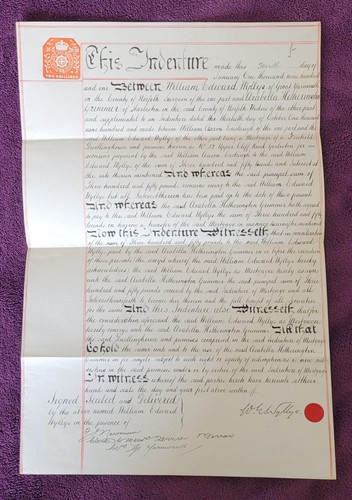 TWO SHILLINGS
This Indenture made this Tenth day of
January One thousand nine hundred
and one Between William Edward Wyllys of Great Yarmouth
in the County of Norfolk Surgeon of the one part and Arabella Hetherington
Grimmer of in the County of Norfolk of the other part and
supplemental to an Indenture dated the day of October One thousand
nine hundred and made between William of the one part and the
said William Edward Wyllys of the other part being a Mortgage of a
Dwellinghouse and premises known as N° 12 Upper Cliff Road Gorleston for
moneys payment by the said William to the said William
Edward Wyllys of the sum of Three hundred and fifty Pounds and interest at
the rate therein mentioned And whereas the said principal sum of
Three hundred and fifty pounds remains owing to the said William Edward
Wyllys but all interest thereon has been paid up to the date of these presents
And whereas the said Arabella Hetherington Grimmer hath agreed
to pay to the said William Edward Wyllys the sum of Three hundred and fifty
pounds on having a transfer of the said Mortgage
Now this Indenture Witnesseth that in consideration
of the sum of Three hundred and fifty pounds to the said William Edward
Wyllys paid by the said Arabella Hetherington Grimmer on or before the execution
of these presents (the receipt whereof the said William Edward Wyllys hereby
acknowledges) the said William Edward Wyllys as Mortgagee hereby assigns
unto the said Arabella Hetherington Grimmer the said principal sum of Three
hundred and fifty pounds secured by the said Indenture of Mortgage and the
interest henceforth to become due thereon and the full benefit of all securities
for the same And this Indenture also Witnesseth that for
the consideration aforesaid the said William Edward Wyllys as Mortgagee
hereby conveys unto the said Arabella Hetherington Grimmer All that
the said Dwellinghouse and premises comprised in the said Indenture of Mortgage
To hold the same unto and to the use of the said Arabella Hetherington
Grimmer in fee simple subject to such right or equity of redemption as is now
subsisting in the said premises under or by virtue of the said Indenture of Mortgage
In witness whereof the said parties have hereunto set their
hands and seals the day and year first above written
Signed Sealed and Delivered
by the above named William Edward
Wyllys in the presence of
W. E. Wyllys
Clerk to Messrs
Yarmouth